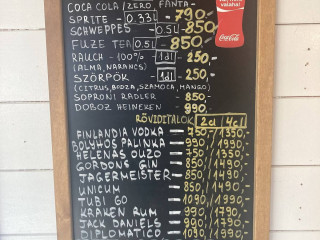 valaha!
Coca-Cola
COCA COLA/ZERO/FANTA-
SPRITE - 0.33l -790-
SCHWEPPES -0.5l -850
FUZE TEA 0.5l -850-
RAUCH - 100% - 1dl - 250,-
(ALMA, NARANCS)
SZÖRPÖK - 1dl - 250,-
(CITRUS, BODZA, SZAMÓCA, MANGO)
SOPRONI RADLER - 850,-
DOBOZ HEINEKEN - 990,-
RÖVIDITALOK 2cl / 4cl
FINLANDIA VODKA - 750,- 1350,-
BOLYHOS PALINKA - 990/1990,-
HELENAS OUZO - 750/1350,-
GORDONS GIN - 850/1490,-
JAGERMEISTER - 850/1490,-
UNICUM - 850/1490,-
TUBI 60 - 1090/1990,-
KRAKEN RUM - 990/1790,-
JACK DANIELS - 990/1790,-
DIPLOMATICO - 1090/1990,-